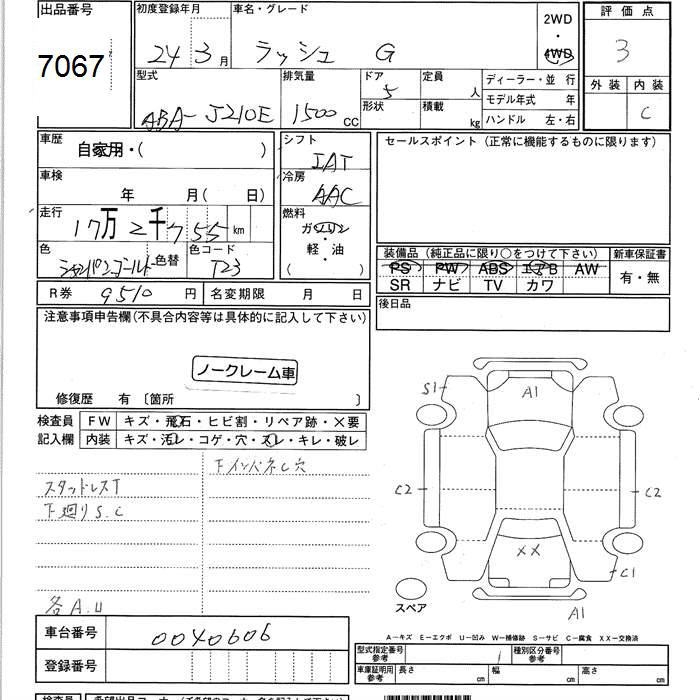 出品番号
7067
初度登録年月
24 3月
車名・グレード
ラッシュ G
2WD
・
4WD
評価点
3
外装 内装
C
型式
ABA-J210E
排気量
1500 CC
ドア
5
形状
定員
人
積載
kg
ディーラー・並 行
モデル年式 年
ハンドル 左・右
車歴
自家用・( )
車検
年 月( 日)
走行
17万2千755 km
色
シャンパンゴールド 色替
色コード
T23
シフト
IAT
冷房
AAC
燃料
ガソリン
・
軽・油
( )
セールスポイント(正常に機能するものに限ります)
装備品(純正品に限り○をつけて下さい)
PS PW ABS エアB AW
SR ナビ TV カワ
新車保証書
有・無
後日品
R券 9510 円 名変期限 月 日
注意事項申告欄(不具合内容等は具体的に記入して下さい)
ノークレーム車
修復歴 有 〔箇所 〕
検査員
記入欄
FW キズ・飛石・ヒビ割・リペア跡・×要
内装 キズ・汚レ・コゲ・穴・スレ・キレ・破レ
下インパネし穴
スタッドレスT
下廻りS.C
各A.U
S1
A1
C2
C2
XX
C1
A1
スペア
A-キズ E-エクボ U-凹み W-補修跡 S-サビ C-腐食 XX-交換済
車台番号 0040606
登録番号
型式指定番号
参考
1
種別区分番号
参考
車庫証明用
参考
長さ cm 幅 cm 高さ cm
検査員